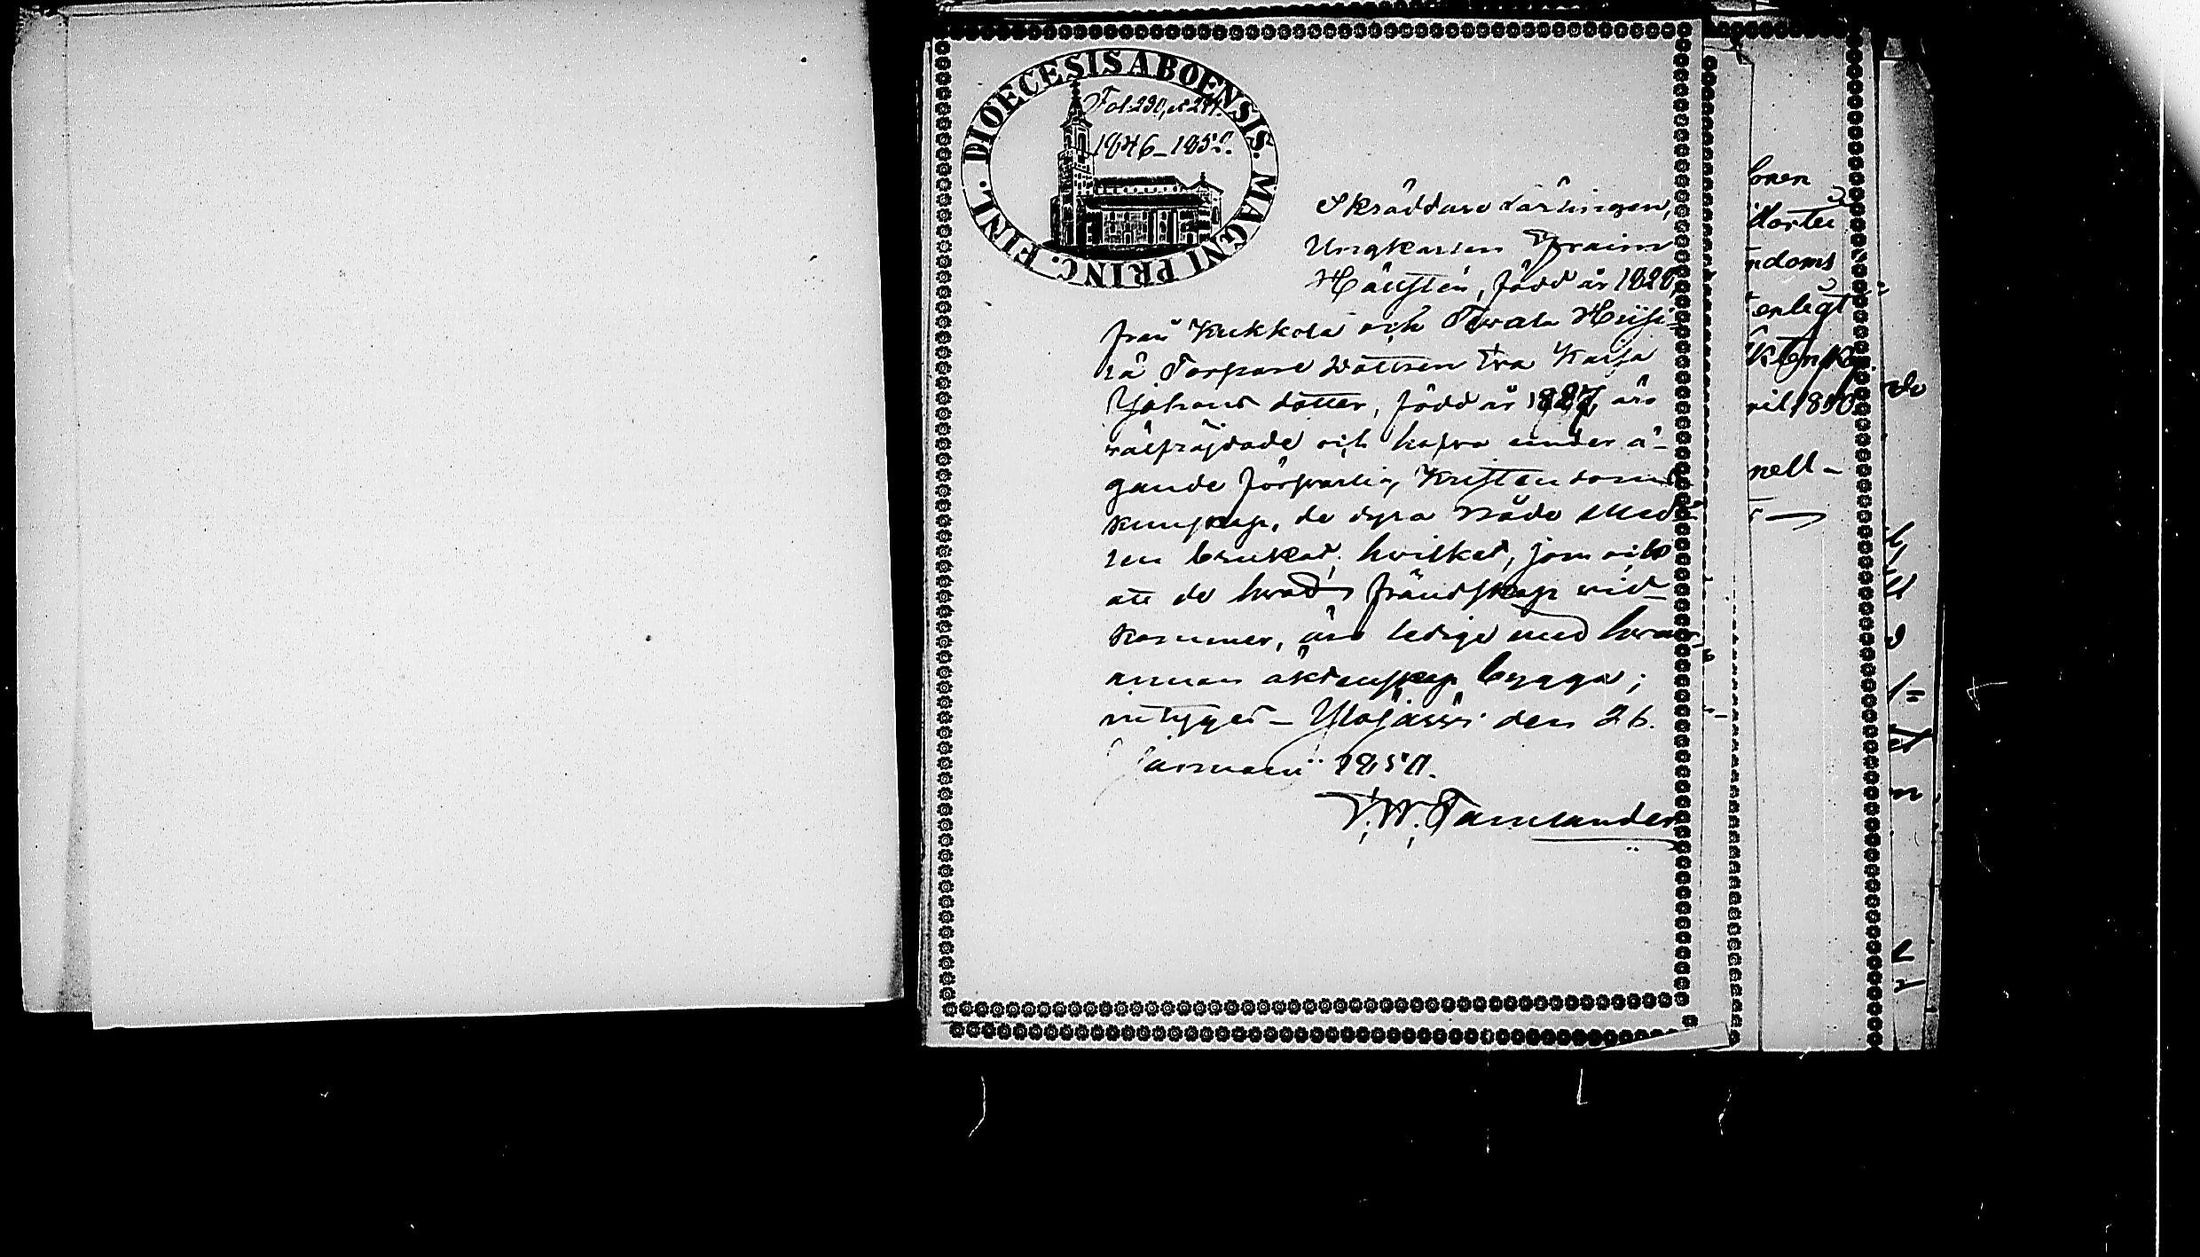 DIOECESIS ABOENSIS. MAGNI PRINC. FINL.
Fol. 230, et 241.
1846–185
Skräddare Lärlingen,
Ungkarlen Efraim
född år 1828,
från Kukkola och
Torpare dottren Eva Kajsa
Johans dotter, född år 1827, äro
välfräjdade och hafva under ä-
gande försvarlig Kristendoms
kunskap, de dyra Nåde Med-
len brukat; hvilket, som ock
att de hvad frändskap vid-
kommer, äro ledige med hvar
annan äktenskap bygga;
intygas – Ylöjärvi den 26.
Januarii 1850.
F. W. Tamlander
onen
ndoms
enligt
ktensk
ril 1850
nell –